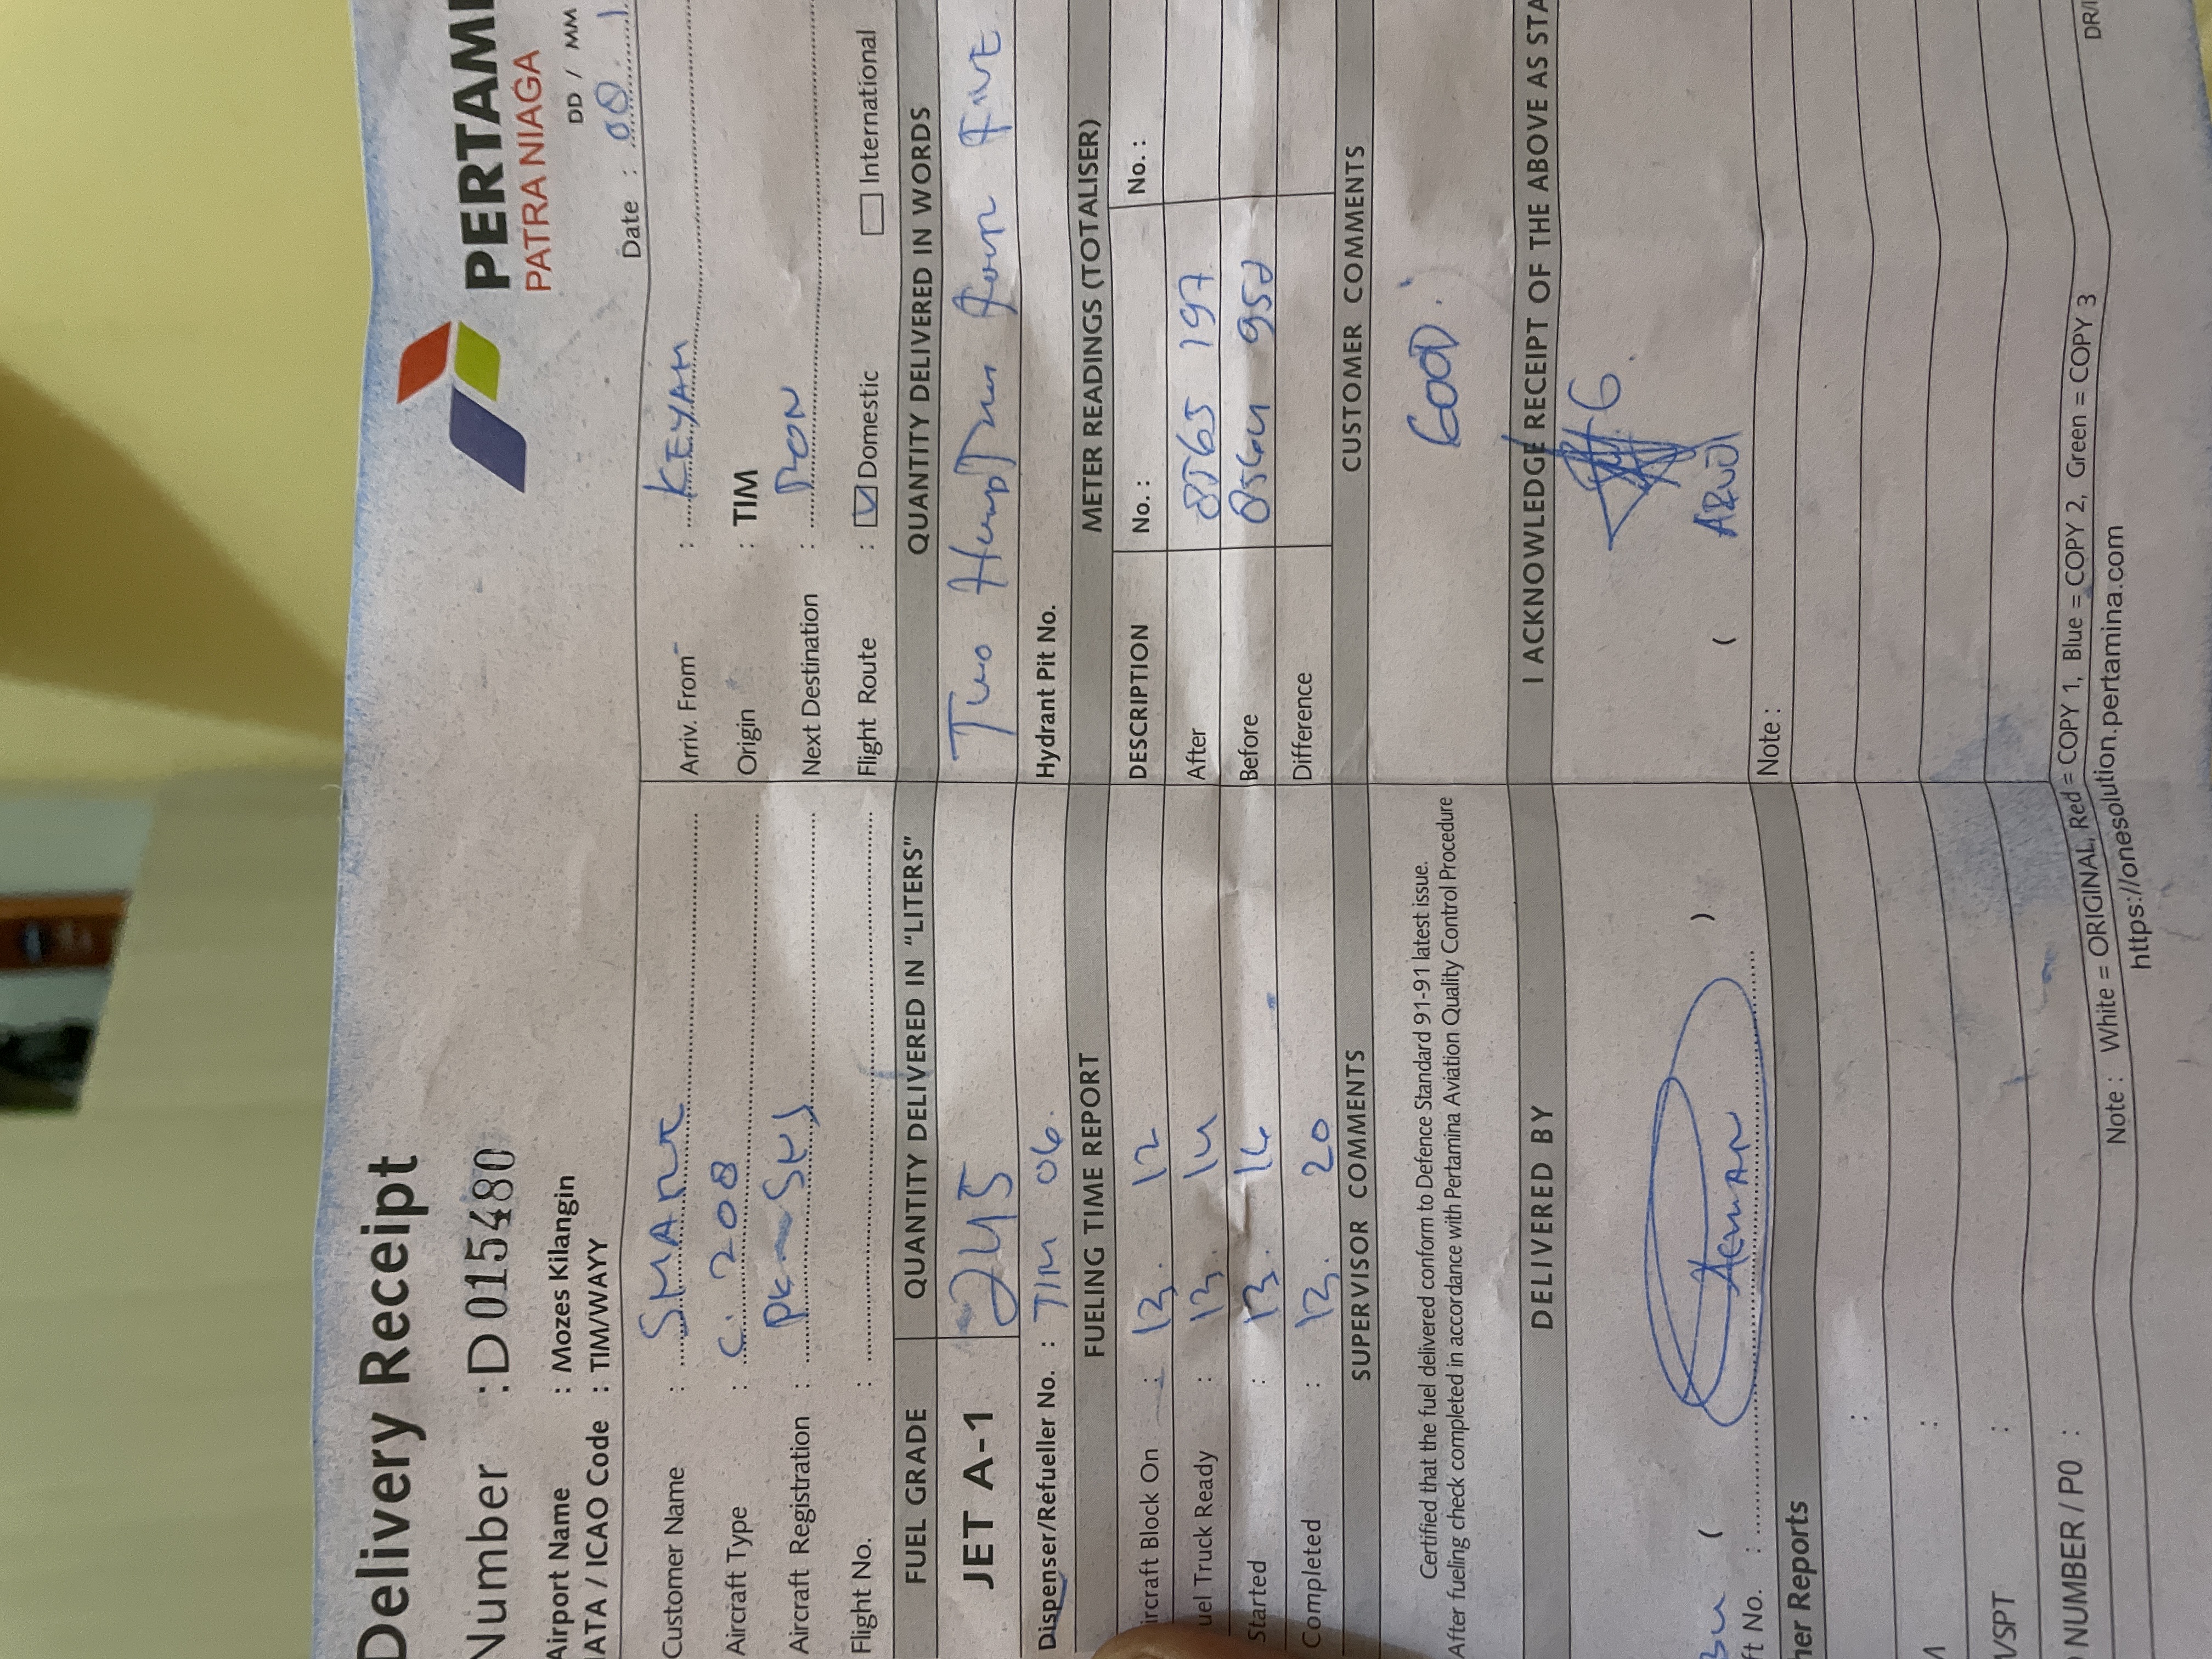 Delivery Receipt
PERTAMI
PATRA NIAGA
Number : D 015480
DD / MM
Airport Name : Mozes Kilangin
Date :
IATA / ICAO Code : TIM/WAYY
Customer Name : SMART
Arriv. From : KEYAH
Aircraft Type : C. 208
Origin : TIM
Aircraft Registration :
Next Destination : RON
Flight No. :
Flight Route : Domestic International
FUEL GRADE QUANTITY DELIVERED IN "LITERS" QUANTITY DELIVERED IN WORDS
JET A-1 245 Two Four Five
Dispenser/Refueller No. : TIM 06.
Hydrant Pit No.
FUELING TIME REPORT METER READINGS (TOTALISER)
ircraft Block On : 13. 12
DESCRIPTION No. : No. :
uel Truck Ready : 13. 14
After 8565 197
Started : 13. 16
Before 8564 952
Completed : 13. 20
Difference
SUPERVISOR COMMENTS CUSTOMER COMMENTS
Certified that the fuel delivered conform to Defence Standard 91-91 latest issue.
After fueling check completed in accordance with Pertamina Aviation Quality Control Procedure
GOOD.
DELIVERED BY I ACKNOWLEDGE RECEIPT OF THE ABOVE AS STA
( )
(
ft No. :
Note :
her Reports
VSPT :
NUMBER / PO :
Note : White = ORIGINAL, Red = COPY 1, Blue = COPY 2, Green = COPY 3
https://onesolution.pertamina.com